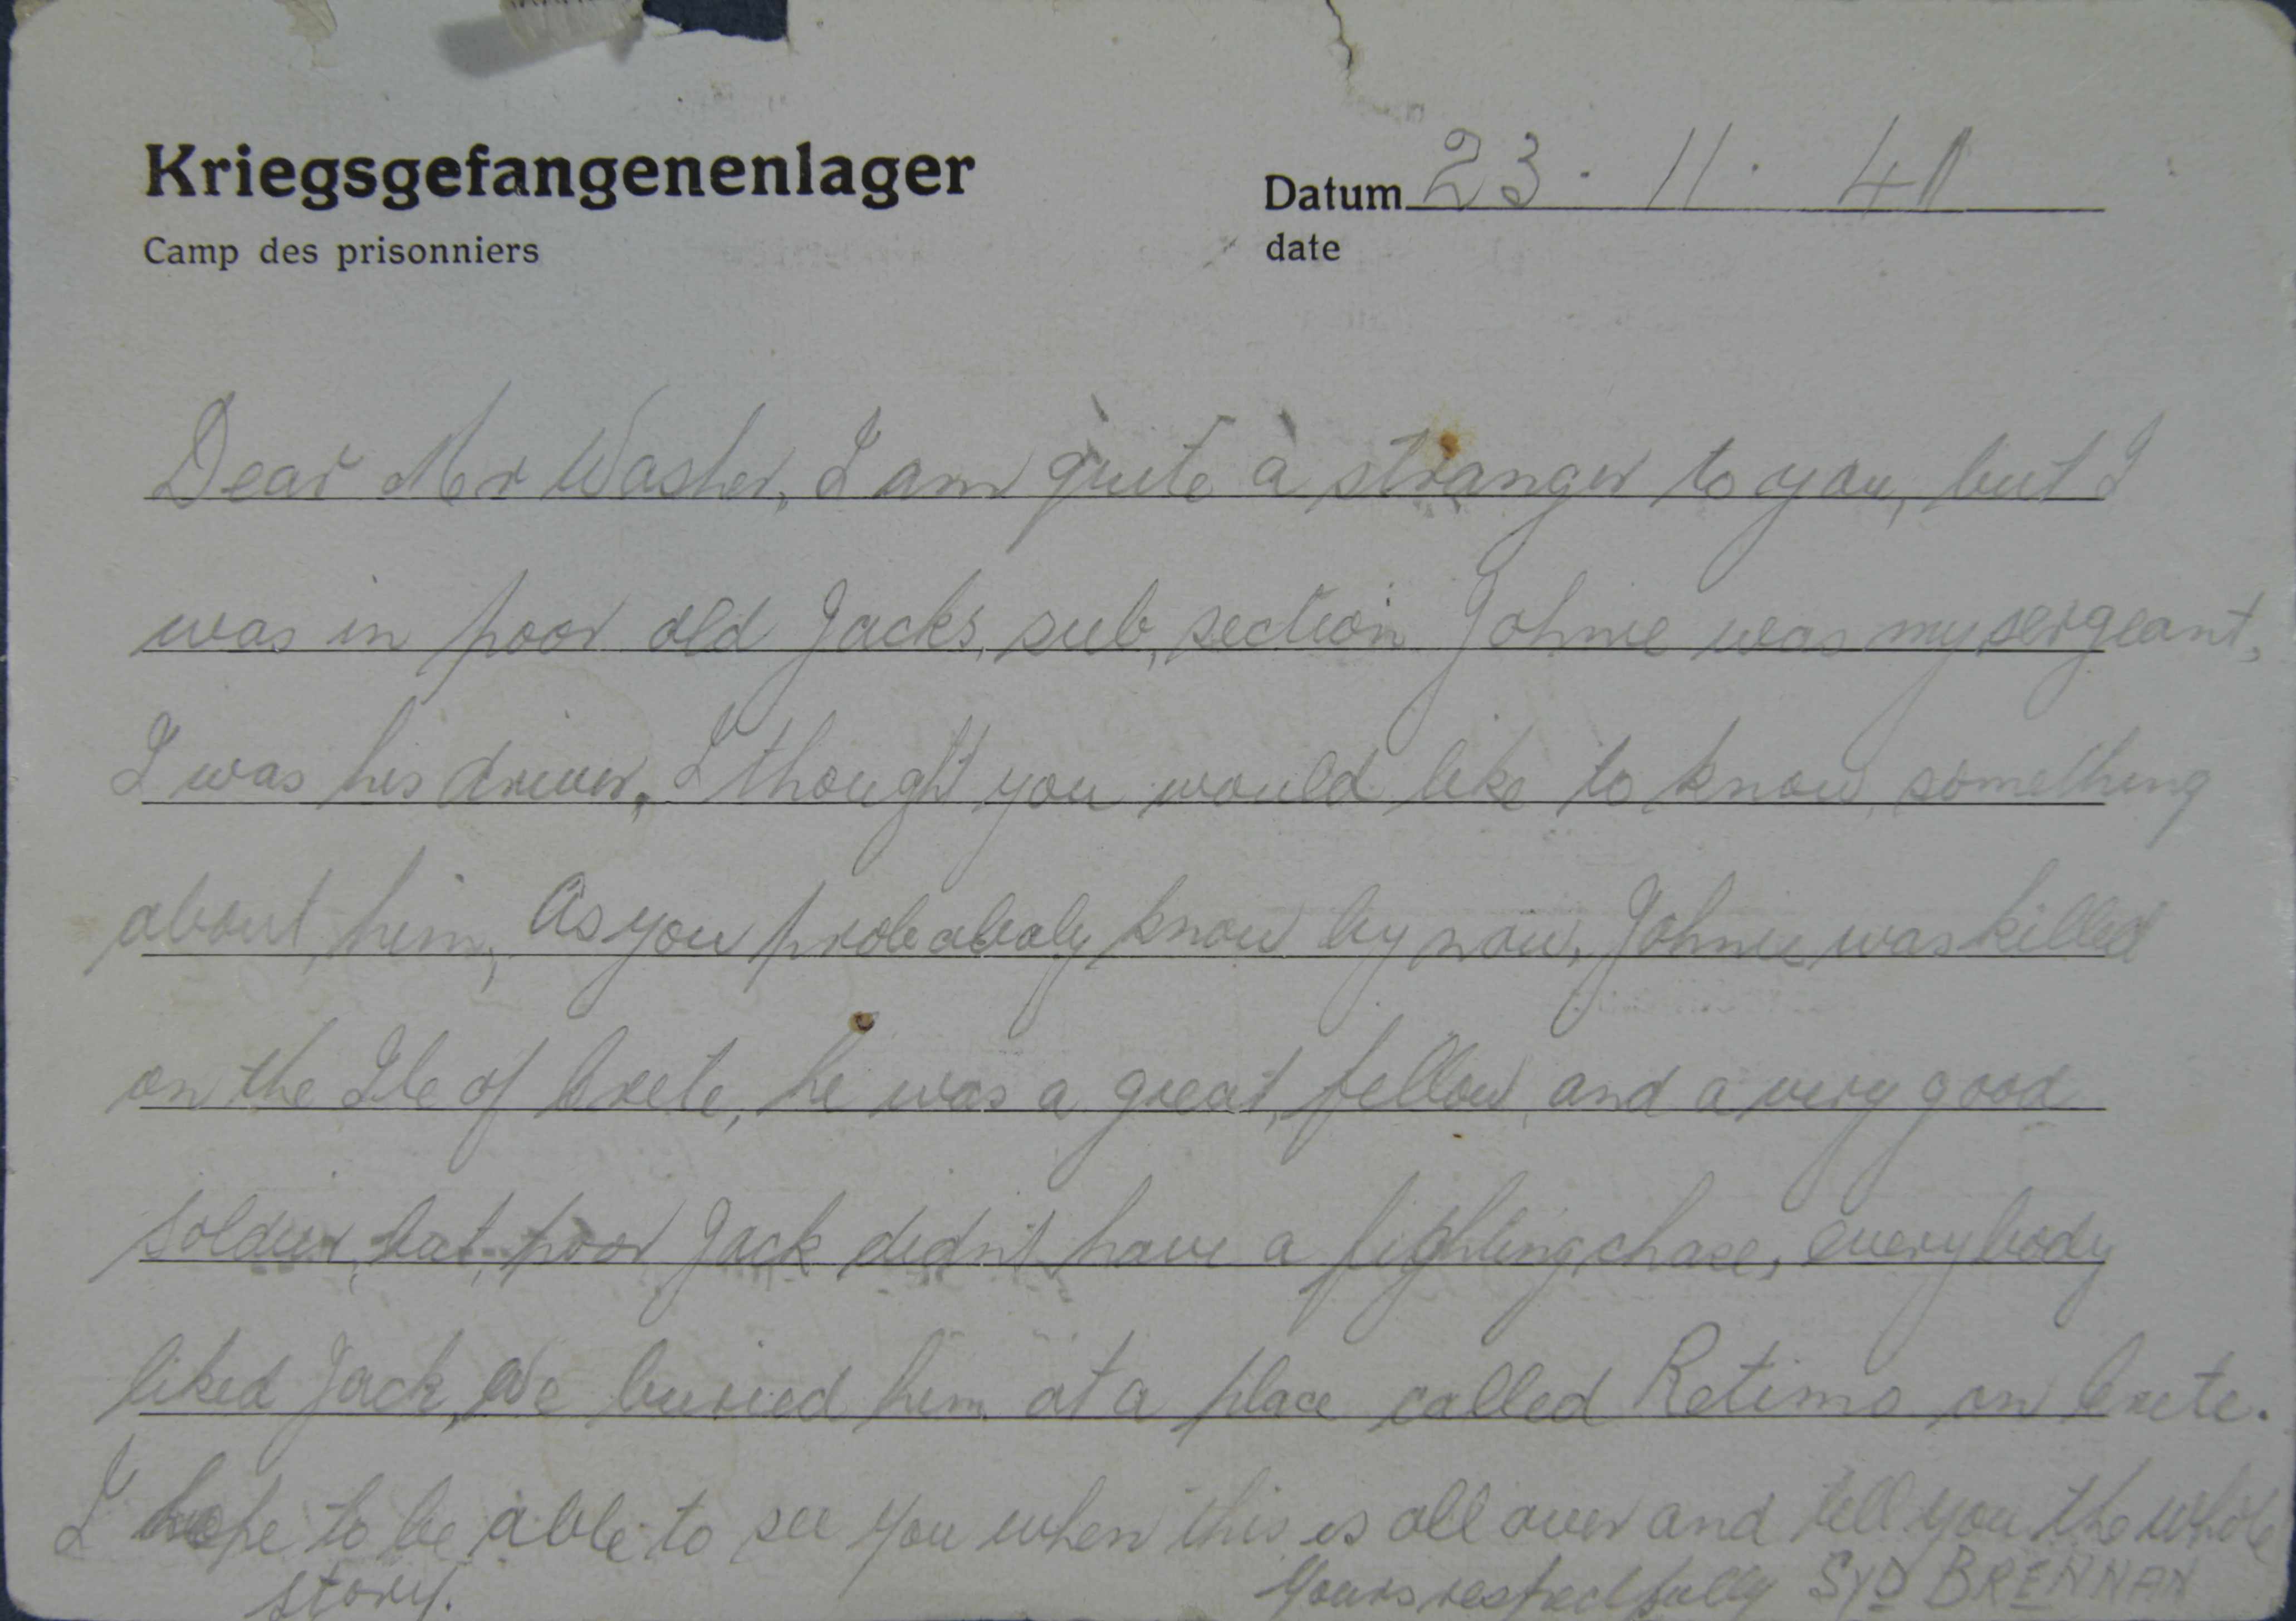 Kriegsgefangenenlager
Camp des prisonniers
Datum 23 · 11 · 41
date
Dear Mr Washer, I am quite a stranger to you, but I
was in poor old Jacks, sub, section Johnie was my sergeant,
I was his driver, I thought you would like to know, something
about him, As you probabaly know by now, Johnie was killed
on the Ile of Crete, he was a great, fellow, and a very good
soldier, but, poor Jack didn't have a fighting chace, everybody
liked Jack, We buried him at a place called Retimo on Crete.
I hope to be able to see you when this is all over and tell you the whole
story.
Yours respectfully SYD BRENNAN